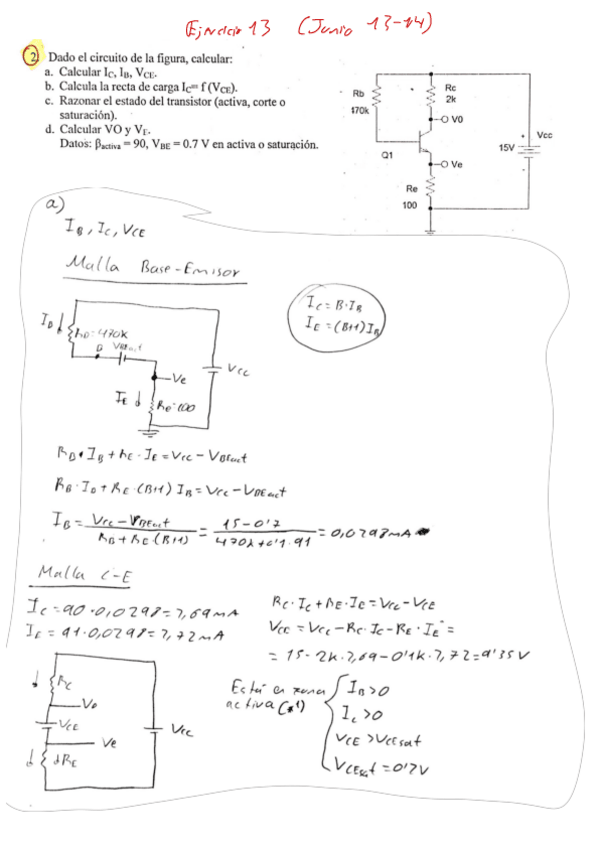 Ejercicio 13 (Junio 13-14)
2. Dado el circuito de la figura, calcular:
a. Calcular IC, IB, VCE.
b. Calcula la recta de carga IC= f (VCE).
c. Razonar el estado del transistor (activa, corte o
saturación).
d. Calcular VO y VE.
Datos: βactiva = 90, VBE = 0.7 V en activa o saturación.
Rb
470k
Rc
2k
V0
Q1
Ve
Re
100
15V
Vcc
a)
IB, IC, VCE
Malla Base-Emisor
IC = B·IB
IE = (B+1) IB
IB
RB=470K
B
VBEact
Ve
Vcc
IE
Re=100
RB·IB + RE·IE = Vcc - VBEact
RB·IB + RE·(B+1) IB = Vcc - VBEact
IB = Vcc - VBEact / RB + RE·(B+1) = 15 - 0'7 / 470k + 0'1·91 = 0,0298mA
Malla C-E
IC = 90·0,0298 = 2,69mA
IE = 91·0,0298 = 2,72mA
RC·IC + RE·IE = Vcc - VCE
VCE = Vcc - RC·IC - RE·IE =
= 15 - 2k·2,69 - 0'1k·2,72 = 9'35V
RC
Vo
VCE
Ve
RE
Vcc
Está en zona
activa (*1)
IB>0
IC>0
VCE > VCEsat
VCEsat = 0'2V